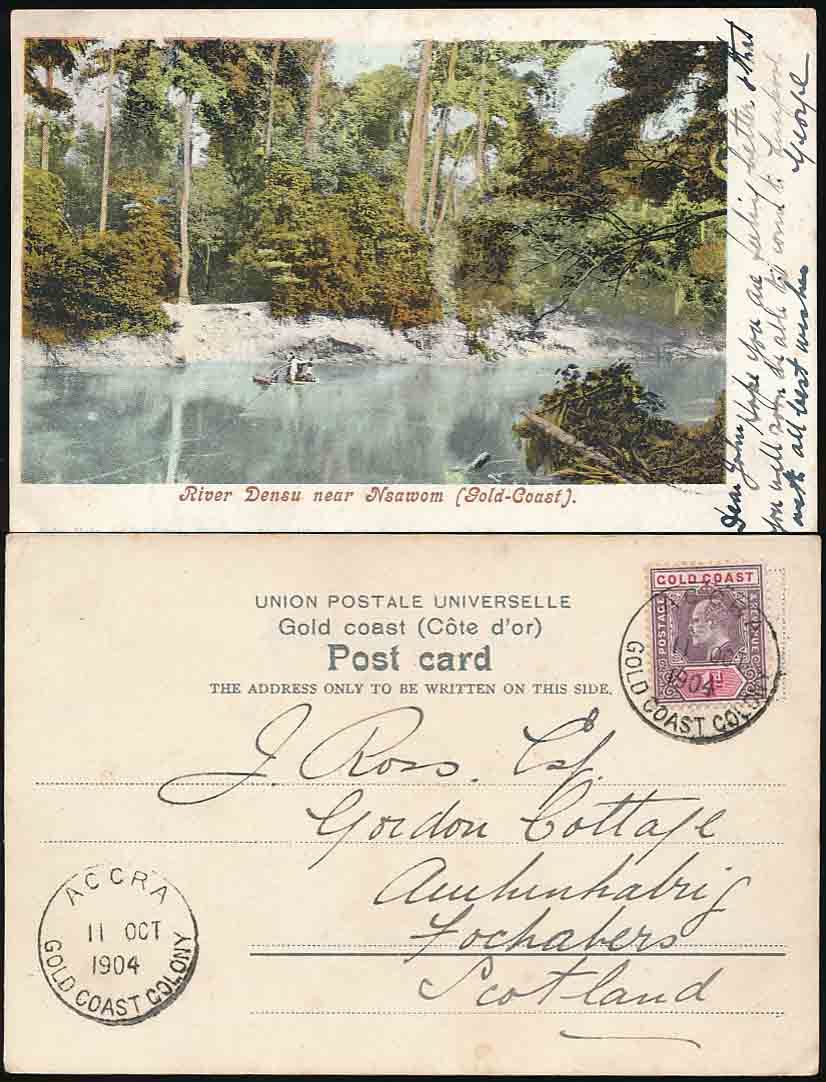 River Densu near Nsawom (Gold-Coast).
Dear John Hope you are feeling better & that
you will soon be able to come to
with all best wishes
George
UNION POSTALE UNIVERSELLE
Gold coast (Côte d'or)
Post card
THE ADDRESS ONLY TO BE WRITTEN ON THIS SIDE.
GOLD COAST
POSTAGE
REVENUE
1d
ACCRA
11 OCT
1904
GOLD COAST COLONY
J. Ross. Esq.
Gordon Cottage
Fochabers
Scotland
ACCRA
11 OCT
1904
GOLD COAST COLONY